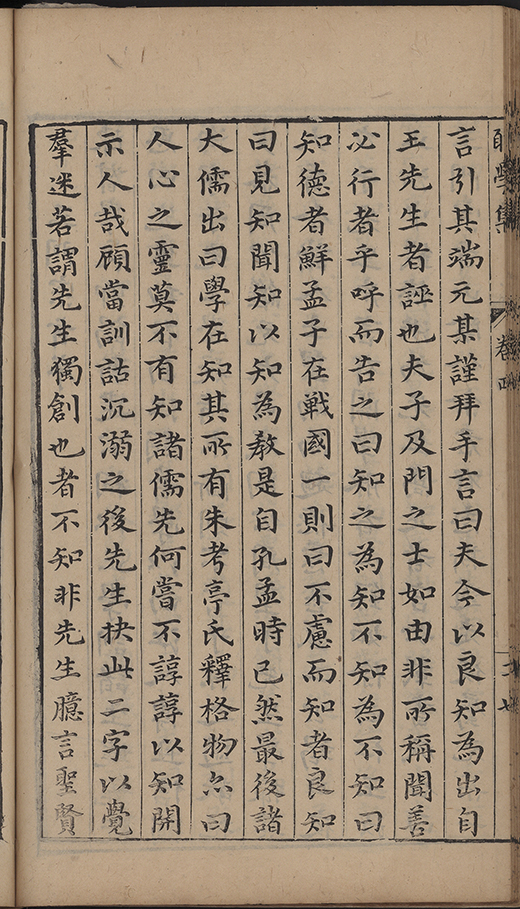 學集 卷四
言引其端元某謹拜手言曰夫今以良知為出自
王先生者誣也夫子及門之士如由非所稱聞善
必行者乎呼而告之曰知之為知不知為不知曰
知德者鮮孟子在戦國一則曰不慮而知者良知
曰見知聞知以知為教是自孔孟時已然最後諸
大儒出曰學在知其所有朱考亭氏釋格物亦曰
人心之靈莫不有知諸儒先何嘗不諄諄以知開
示人哉顧當訓詁沉溺之後先生抉此二字以覺
羣迷若謂先生獨創也者不知非先生臆言聖賢